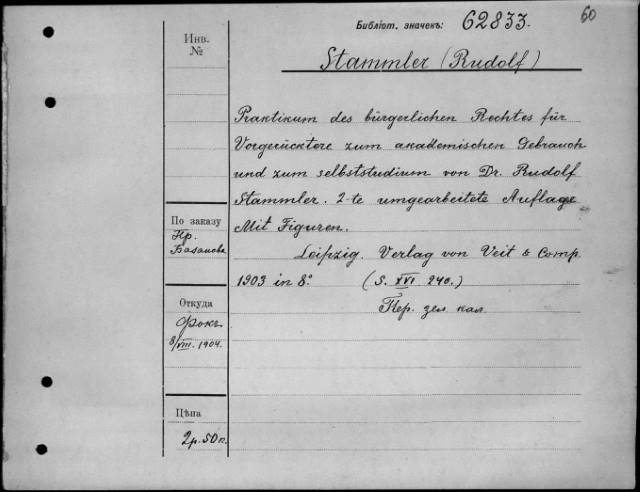 Библіот. значекъ: 62833.
60
Инв.
№
Stammler (Rudolf)
Praktikum des bürgerlichen Rechtes für
Vorgerücktere zum akademischen Gebrauch
und zum selbststudium von Dr. Rudolf
Stammler. 2-te umgearbeitete Auflage
Mit Figuren.
Leipzig. Verlag von Veit & Comp
1903 in 8º (S. XVI 240.)
Пер. зел. кал.
По заказу
Пр.
Базанова
Откуда
Фокъ
8/VIII. 1904.
Цѣна
2р. 50к.